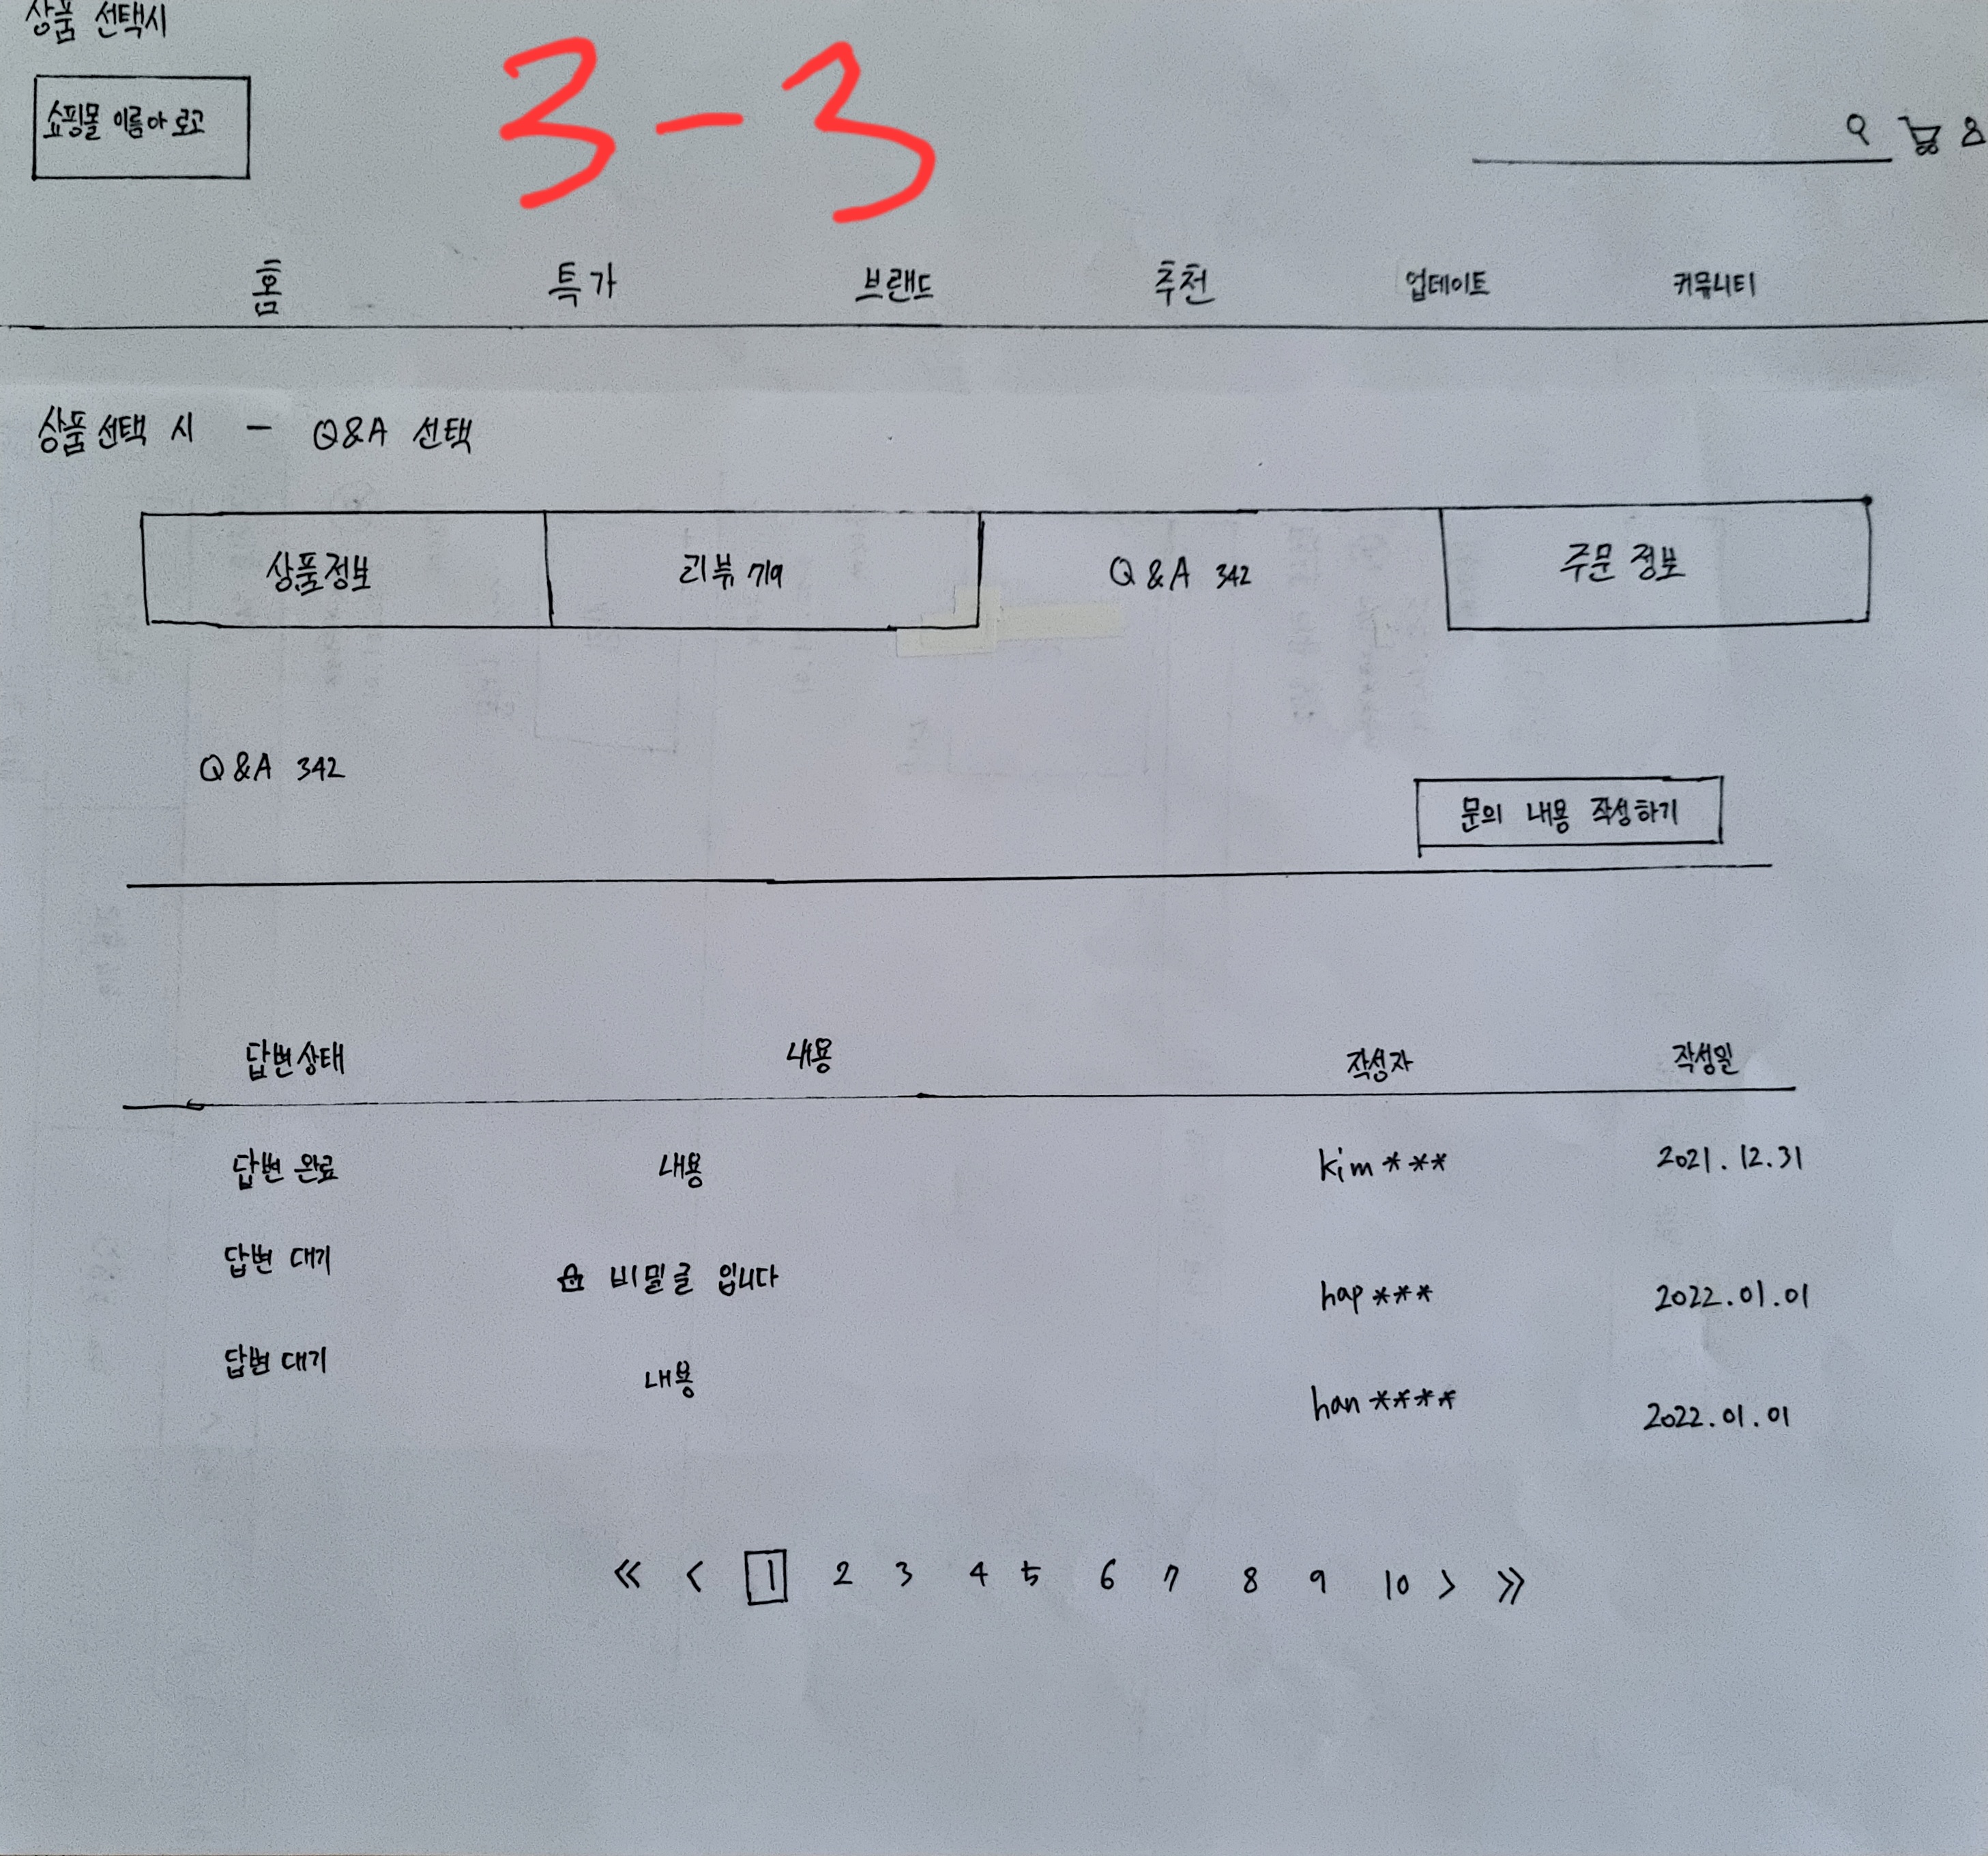 상품 선택시
3-3
쇼핑몰 이름아 로고
홈 특가 브랜드 추천 업데이트 커뮤니티
상품선택 시 - Q&A 선택
상품정보 리뷰 719 Q&A 342 주문 정보
Q&A 342
문의 내용 작성하기
답변상태 내용 작성자 작성일
답변 완료 내용 kim*** 2021.12.31
답변 대기 비밀글 입니다 hap*** 2022.01.01
답변 대기 내용 han**** 2022.01.01
« < 1 2 3 4 5 6 7 8 9 10 > »